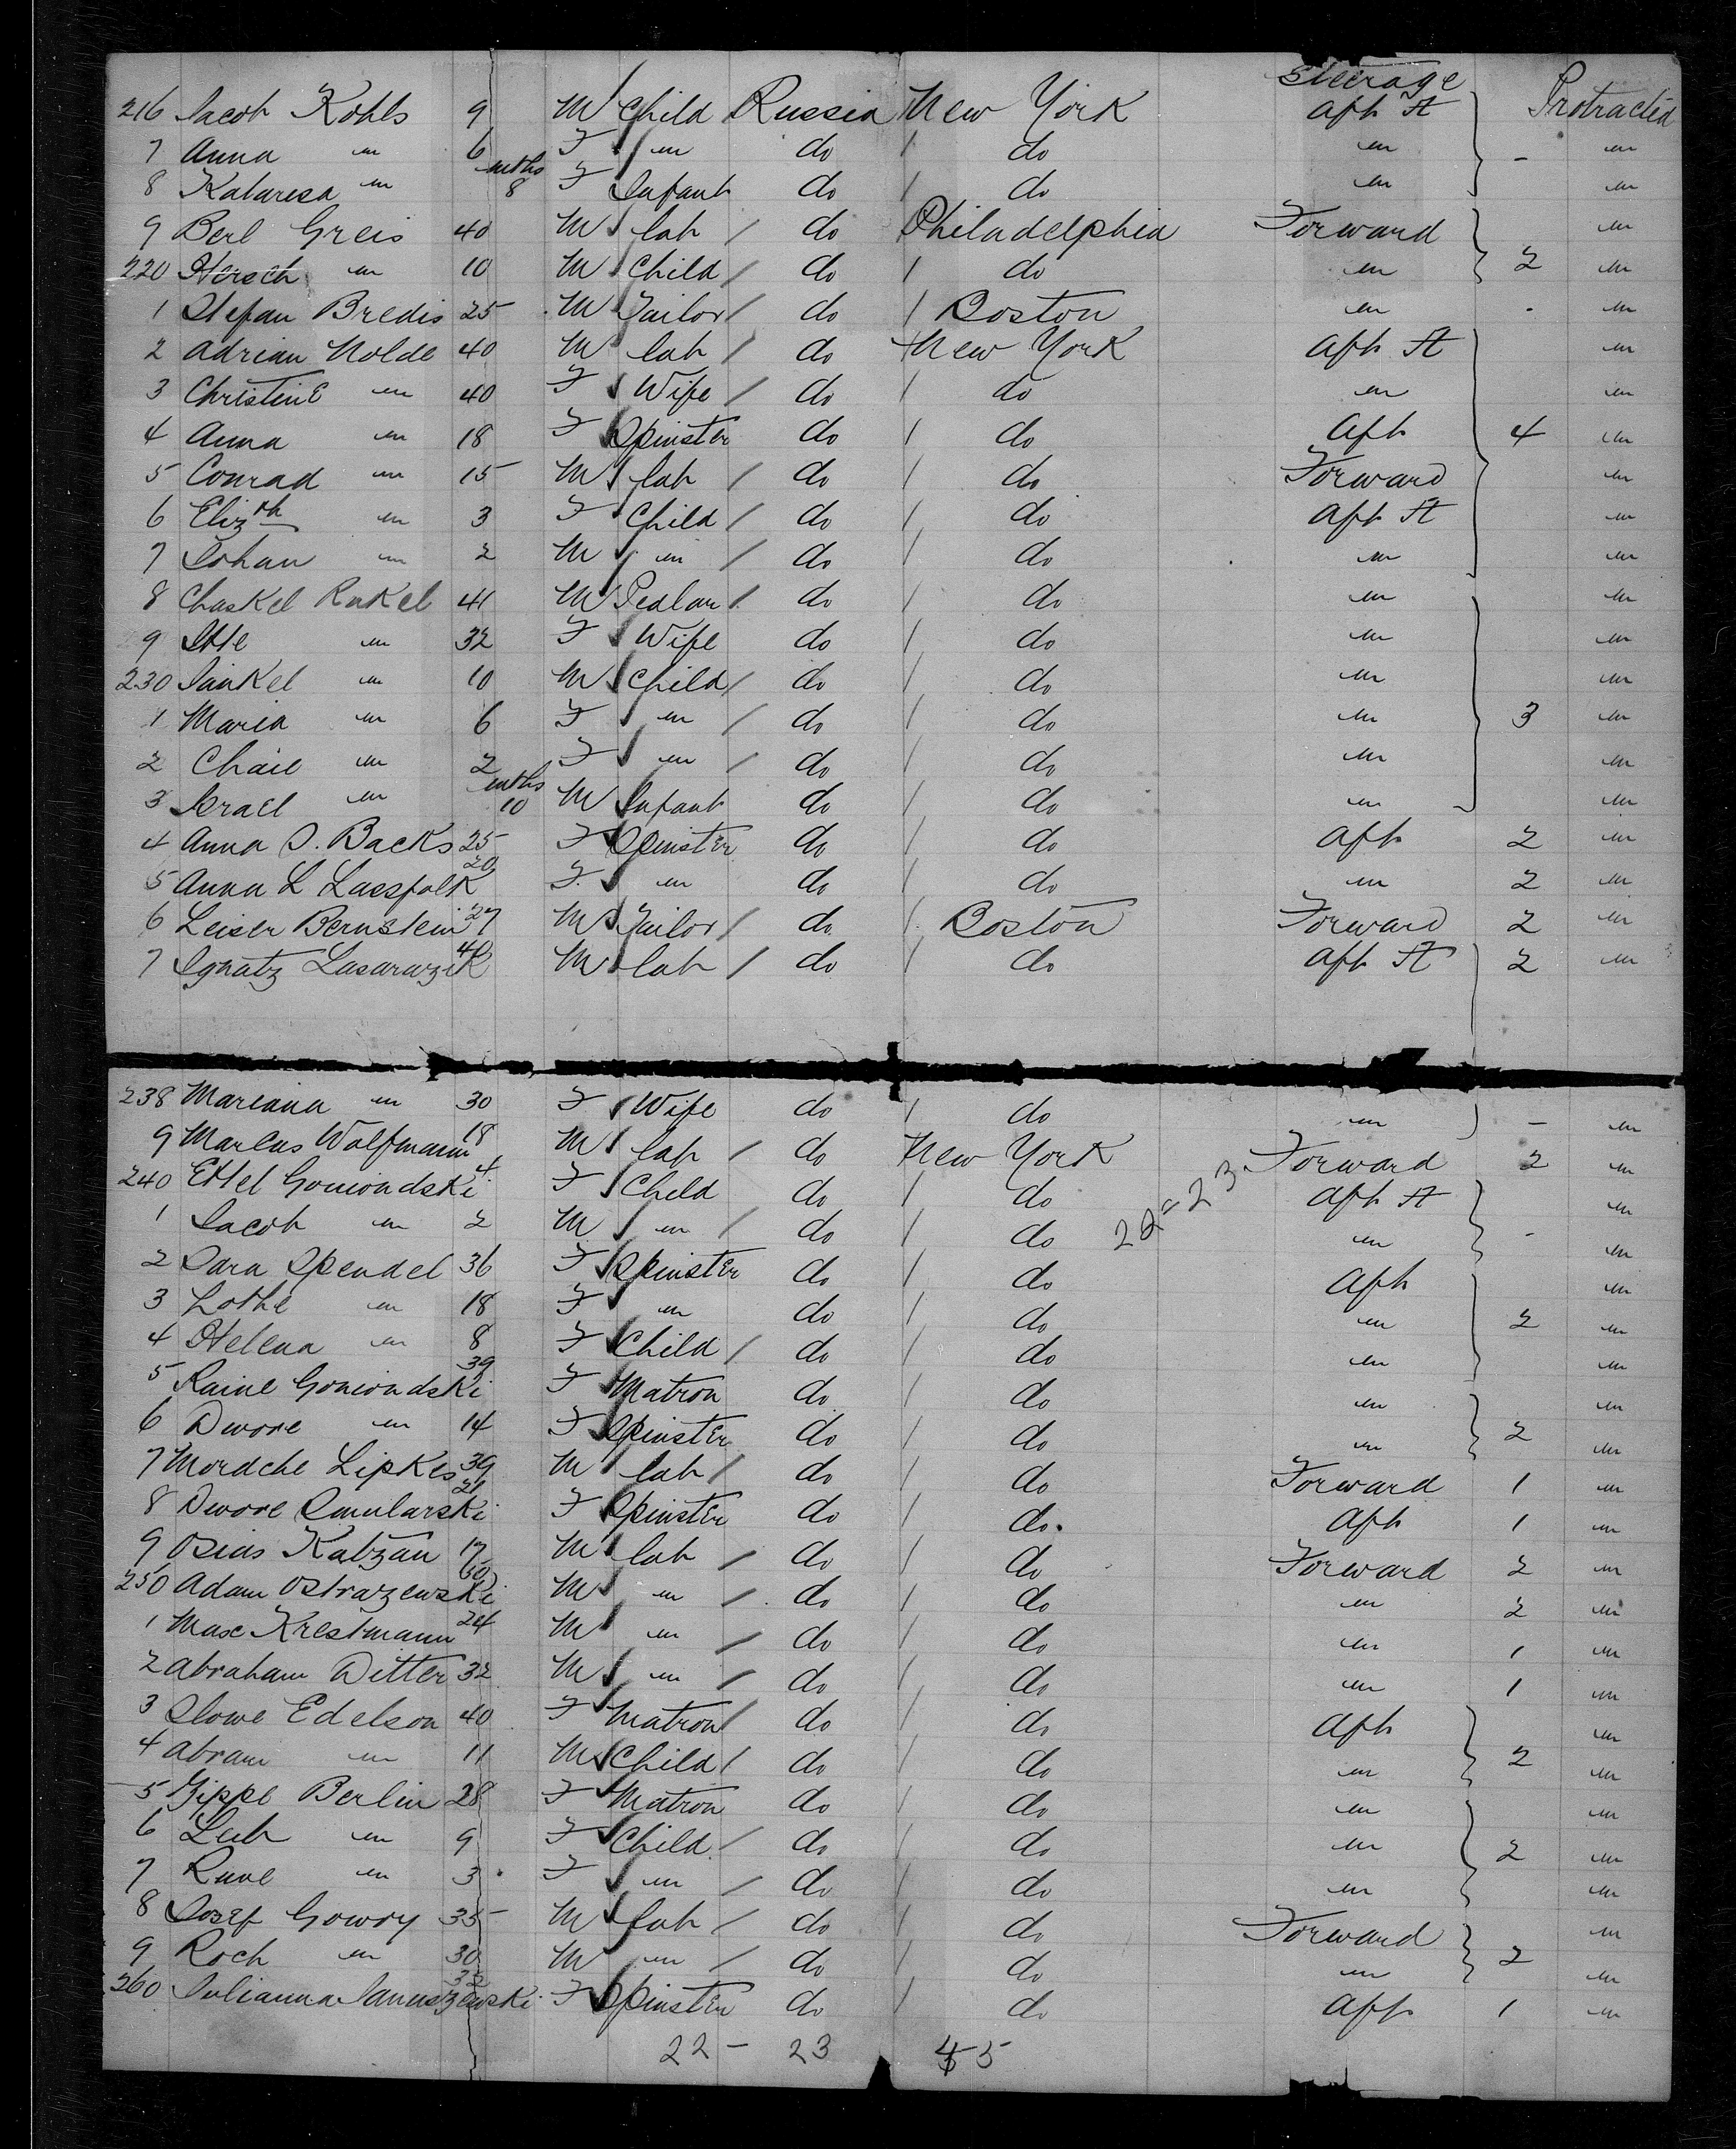 Steerage
216 Jacob Kohls 9 M Child Russia New York Aft St Protracted
7 Anna " 6 F " do / do " - "
8 Katarena " mths 8 F Infant do / do " "
9 Berl Greis 40 M lab / do Philadelphia Forward "
220 Hersch " 10 M Child / do / do " 2 "
1 Stefan Bredis 25 M Tailor / do / Boston " - "
2 Adrian Nolde 40 M lab / do New York Aft St "
3 Christine " 40 F Wife / do / do " "
4 Anna " 18 F Spinster do / do Aft 4 "
5 Conrad " 15 M lab / do / do Forward "
6 Elizth " 3 F Child / do / do Aft St "
7 Johan " 2 M " / do / do " "
8 Chaskel Rukel 41 M Pedlar / do / do " "
9 Itte " 32 F Wife do / do " "
230 Jankel " 10 M Child / do / do " "
1 Maria " 6 F " / do / do " 3 "
2 Chaie " 2 F " / do / do " "
3 Israel " mths 10 M Infant do / do " "
4 Anna S. Backs 25 F Spinster do / do Aft 2 "
5 Anna L 20 F " do / do " 2 "
6 Leiser Bernstein 27 M Tailor / do / Boston Forward 2 "
7 Ignatz Lasarawzik 40 M lab / do / do Aft St 2 "
238 Mariana " 30 F Wife do / do " - "
9 Marcus Wolfmann 18 M lab / do New York Forward 2 "
240 Ettel Goniondski 4 F Child do / do Aft St "
1 Jacob " 2 M " / do / do 22=23 " - "
2 Sara Spendel 36 F Spinster do / do Aft "
3 Lothe " 18 F " do / do " 2 "
4 Helena " 8 F Child / do / do " "
5 Raine Goniondski 39 F Matron do / do " "
6 Dwore " 14 F Spinster do / do " 2 "
7 Mordche Lipkes 39 M lab / do / do Forward 1 "
8 Dwore Smularski 21 F Spinster do / do. Aft 1 "
9 Osias Katzan 17 M lab / do / do Forward 2 "
250 Adam Ostrazewski 60 M " / do / do " 2 "
1 Max Krestmann 24 M " / do / do " 1 "
2 Abraham Ditter 32 M " / do / do " 1 "
3 Slowe Edelson 40 F Matron / do / do Aft "
4 Abram " 11 M Child / do / do " 2 "
5 Gippe Berlin 28 F Matron do / do " "
6 Leib " 9 F Child / do / do " 2 "
7 Rune " 3 F " / do / do " "
8 Josef Gowry 35 M lab / do / do Forward "
9 Roch " 30 M " / do / do " 2 "
260 Julianna Januszewski 32 F Spinster do / do Aft 1 "
22 - 23 45